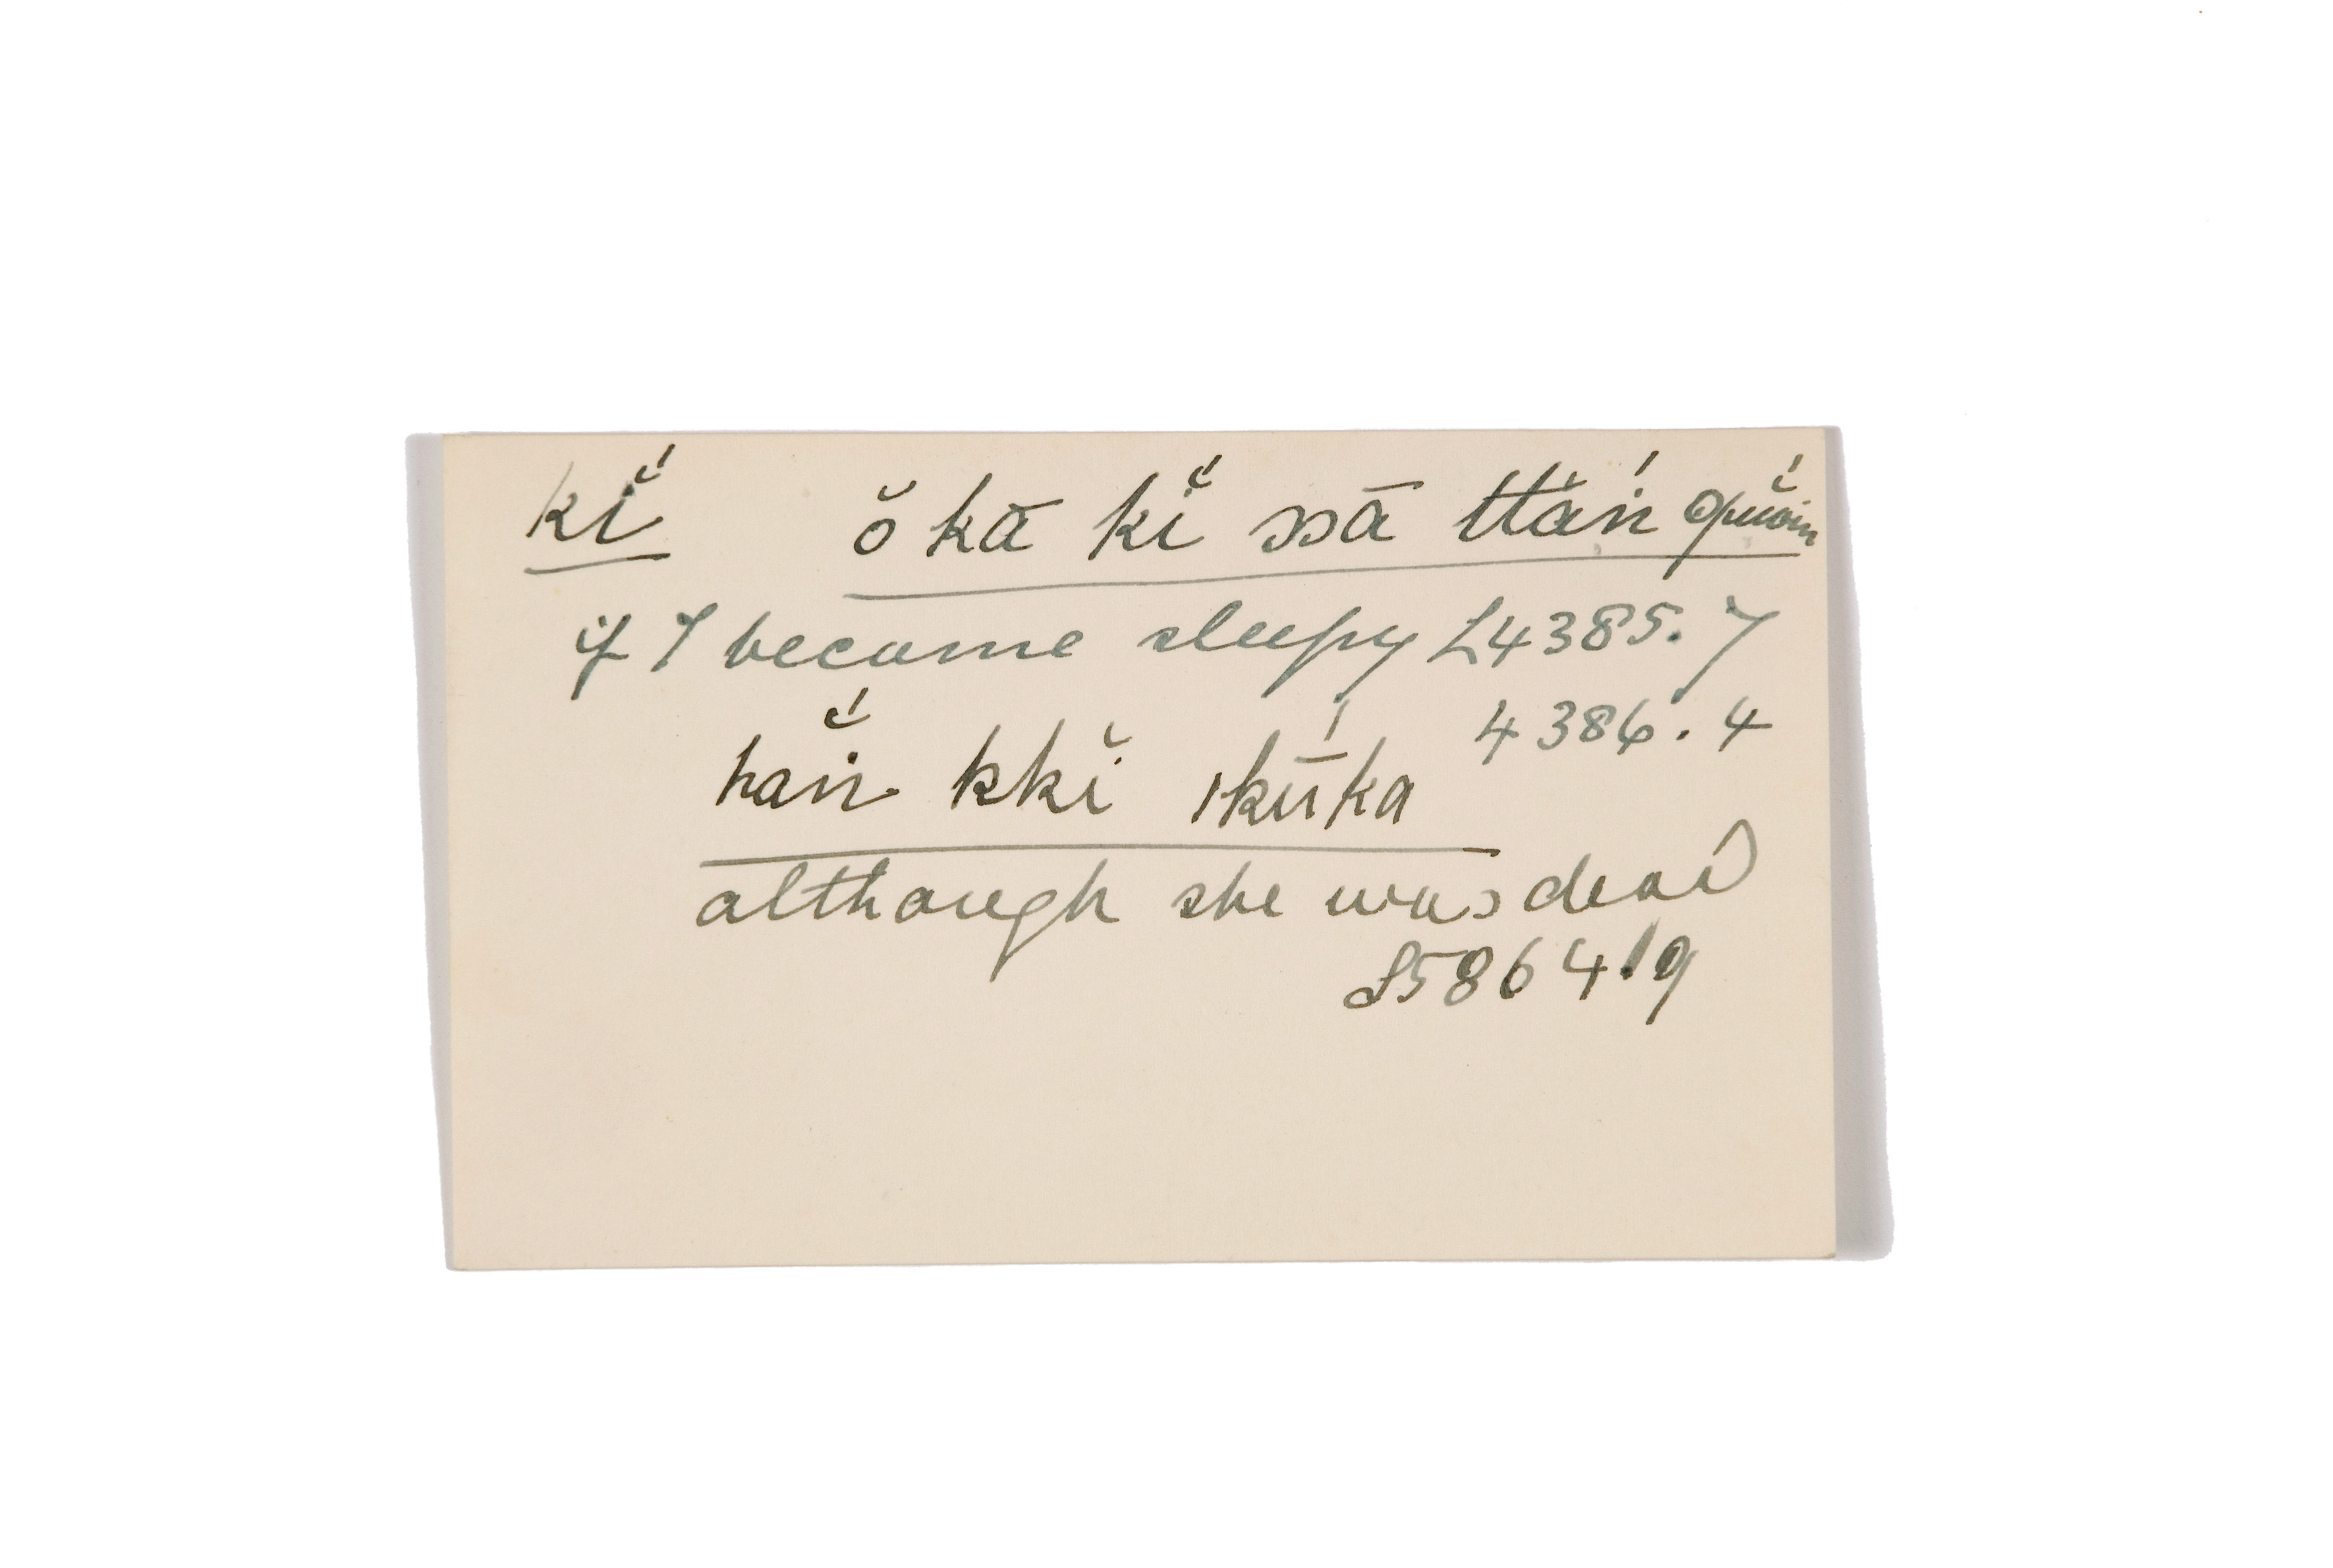 kĭ́ ŏ kā kĭ́ ssā ttăń
if I become sleepy L4385.7
4386.4
hăń kkĭ ıkū́ka
although she was dead
L5864.9